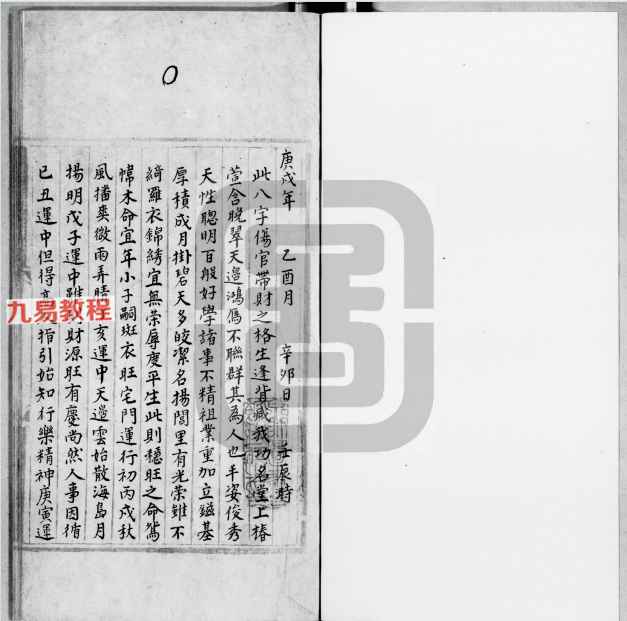 庚戌年 乙酉月 辛卯日 壬辰時
此八字傷官帶財之格生逢背祿我功名堂上椿
萱含晚翠天邊鴻鴈不聯群其為人也丰姿俊秀
天性聰明百般好學諸事不精祖業重加立鎡基
厚積成月掛碧天多皎潔名揚閭里有光榮雖不
綺羅衣錦綉宜無榮辱度平生此則穩旺之命鴛
幃木命宜年小子嗣斑衣旺宅門運行初丙戌秋
風播奕微雨弄晴亥運中天邊雲始散海島月
揚明戊子運中雖財源旺有慶尚然人事因循
已丑運中但得指引始知行樂精神庚寅運
九易教程